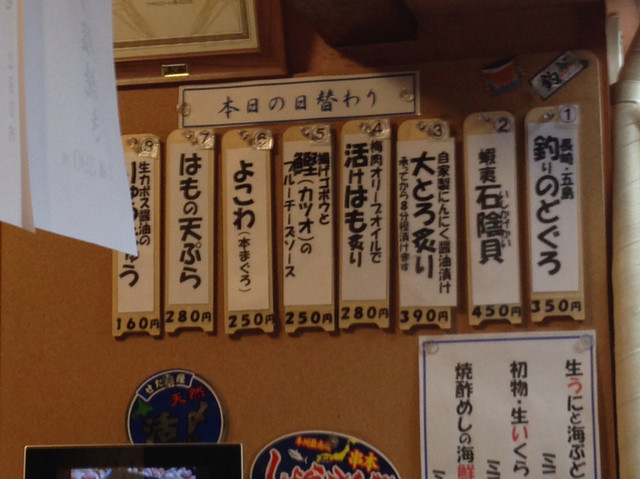 本日の日替わり
①
長崎・五島
釣りのどぐろ
350円
2
蝦夷石陰貝
いしかげがい
450円
3
自家製にんにく醤油漬け
大とろ炙り
炙ってから8分程漬けます
390円
4
梅肉オリーブオイルで
活けはも炙り
280円
5
揚げゴボウと
鰹(カツオ)の
ブルーチーズソース
250円
6
よこわ(本まぐろ)
250円
7
はもの天ぷら
280円
生カボス醤油の
りゅうきゅう
160円
生うにと海ぶど
初物・生いくら
ミニ
焼酢めしの海鮮
ミニ
天然
活〆
串本